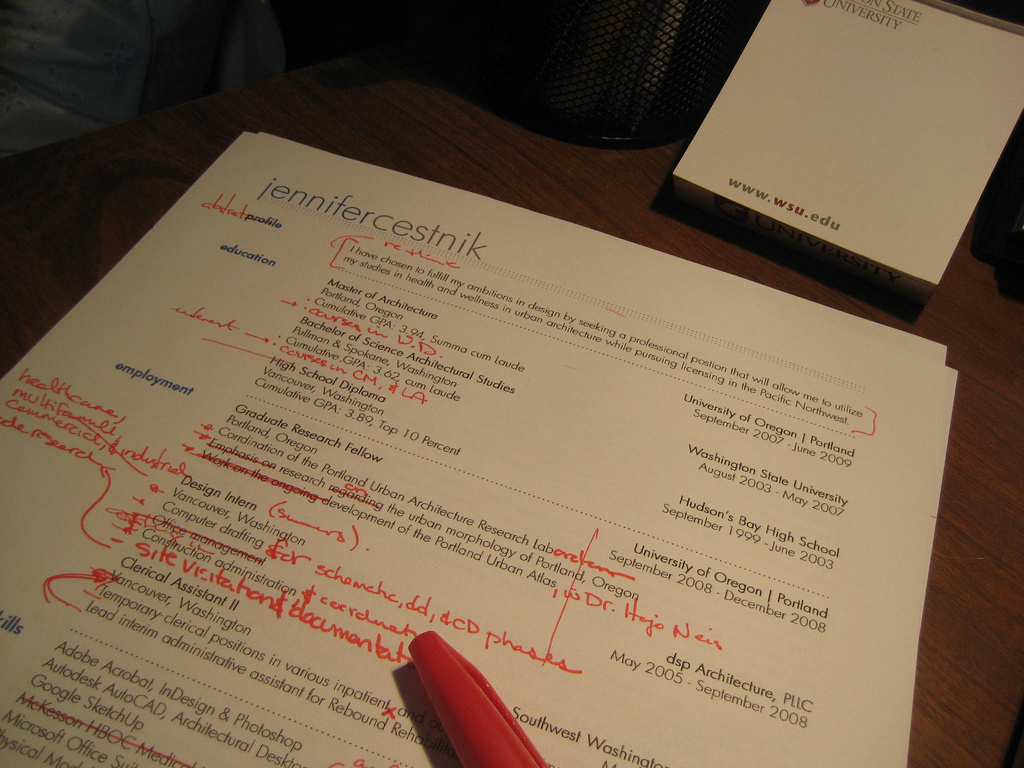 ON STATE
UNIVERSITY
www.wsu.edu
UNIVERSITY
jennifercestnik
abstract profile
rethink
I have chosen to fulfill my ambitions in design by seeking a professional postion that will allow me to utilize
my studies in health and wellness in urban architecture while pursuing licensing in the Pacific Northwest.
education
Master of Architecture
University of Oregon | Portland
Portland, Oregon
September 2007 - June 2009
Cumulative GPA: 3.94, Summa cum Laude
courses in U.D.
Bachelor of Science Architectural Studies
Washington State University
Pullman & Spokane, Washington
August 2003 - May 2007
Cumulative GPA: 3.62, cum Laude
interest
courses in CM, & LA
High School Diploma
Hudson's Bay High School
Vancouver, Washington
September 1999 - June 2003
Cumulative GPA: 3.89, Top 10 Percent
employment
Graduate Research Fellow
University of Oregon | Portland
Portland, Oregon
September 2008 - December 2008
Cordination of the Portland Urban Architecture Research Laboratory
Emphasis on research regarding the urban morphology of Portland, Oregon
on
Work on the ongoing development of the Portland Urban Atlas, w Dr. Hajo Neis
healthcare,
multifamily,
commercial, & industrial
code research
Design Intern (summers).
dsp Architecture, PLLC
Vancouver, Washington
May 2005 - September 2008
Computer drafting for schematic, dd, & CD phases
Office management
Construction administration & coordination
- site visitation & documentation
Clerical Assistant II
Southwest Washington
Vancouver, Washington
Temporary clerical positions in various inpatient and
Lead interim administrative assistant for Rebound Rehabilit
kills
Adobe Acrobat, InDesign & Photoshop
Autodesk AutoCAD, Architectural Deskto
Google SketchUp
McKesson HBOC Medical
Microsoft Office Suit
hysical Mod